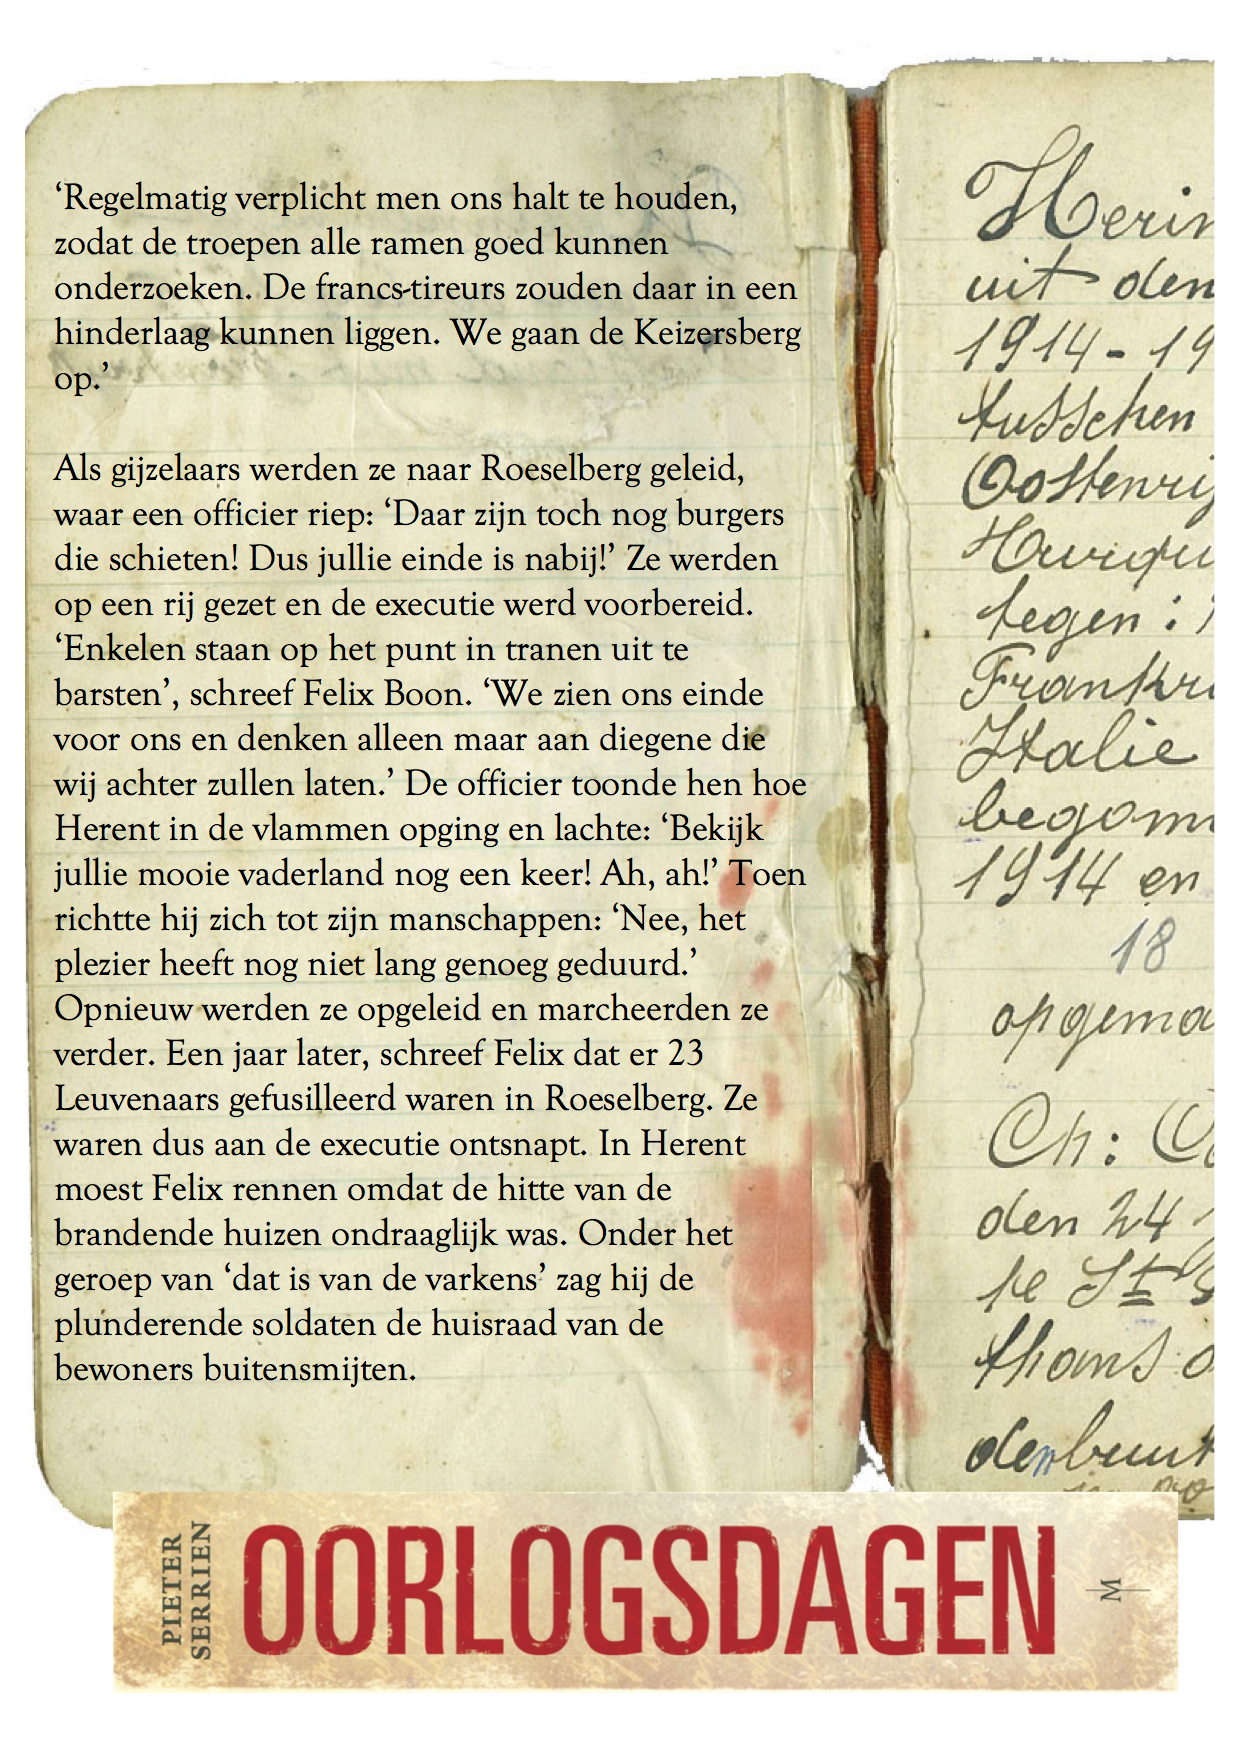 ‘Regelmatig verplicht men ons halt te houden,
zodat de troepen alle ramen goed kunnen
onderzoeken. De francs-tireurs zouden daar in een
hinderlaag kunnen liggen. We gaan de Keizersberg
op.’
Als gijzelaars werden ze naar Roeselberg geleid,
waar een officier riep: ‘Daar zijn toch nog burgers
die schieten! Dus jullie einde is nabij!’ Ze werden
op een rij gezet en de executie werd voorbereid.
‘Enkelen staan op het punt in tranen uit te
barsten’, schreef Felix Boon. ‘We zien ons einde
voor ons en denken alleen maar aan diegene die
wij achter zullen laten.’ De officier toonde hen hoe
Herent in de vlammen opging en lachte: ‘Bekijk
jullie mooie vaderland nog een keer! Ah, ah!’ Toen
richtte hij zich tot zijn manschappen: ‘Nee, het
plezier heeft nog niet lang genoeg geduurd.’
Opnieuw werden ze opgeleid en marcheerden ze
verder. Een jaar later, schreef Felix dat er 23
Leuvenaars gefusilleerd waren in Roeselberg. Ze
waren dus aan de executie ontsnapt. In Herent
moest Felix rennen omdat de hitte van de
brandende huizen ondraaglijk was. Onder het
geroep van ‘dat is van de varkens’ zag hij de
plunderende soldaten de huisraad van de
bewoners buitensmijten.
Herin
uit den
1914-19
tusschen
Oostenrij
tegen :
Frankr
Italie
begom
1914 en
18
opgema
Ch:
den 24
te St
thans
PIETER
SERRIEN
OORLOGSDAGEN
M